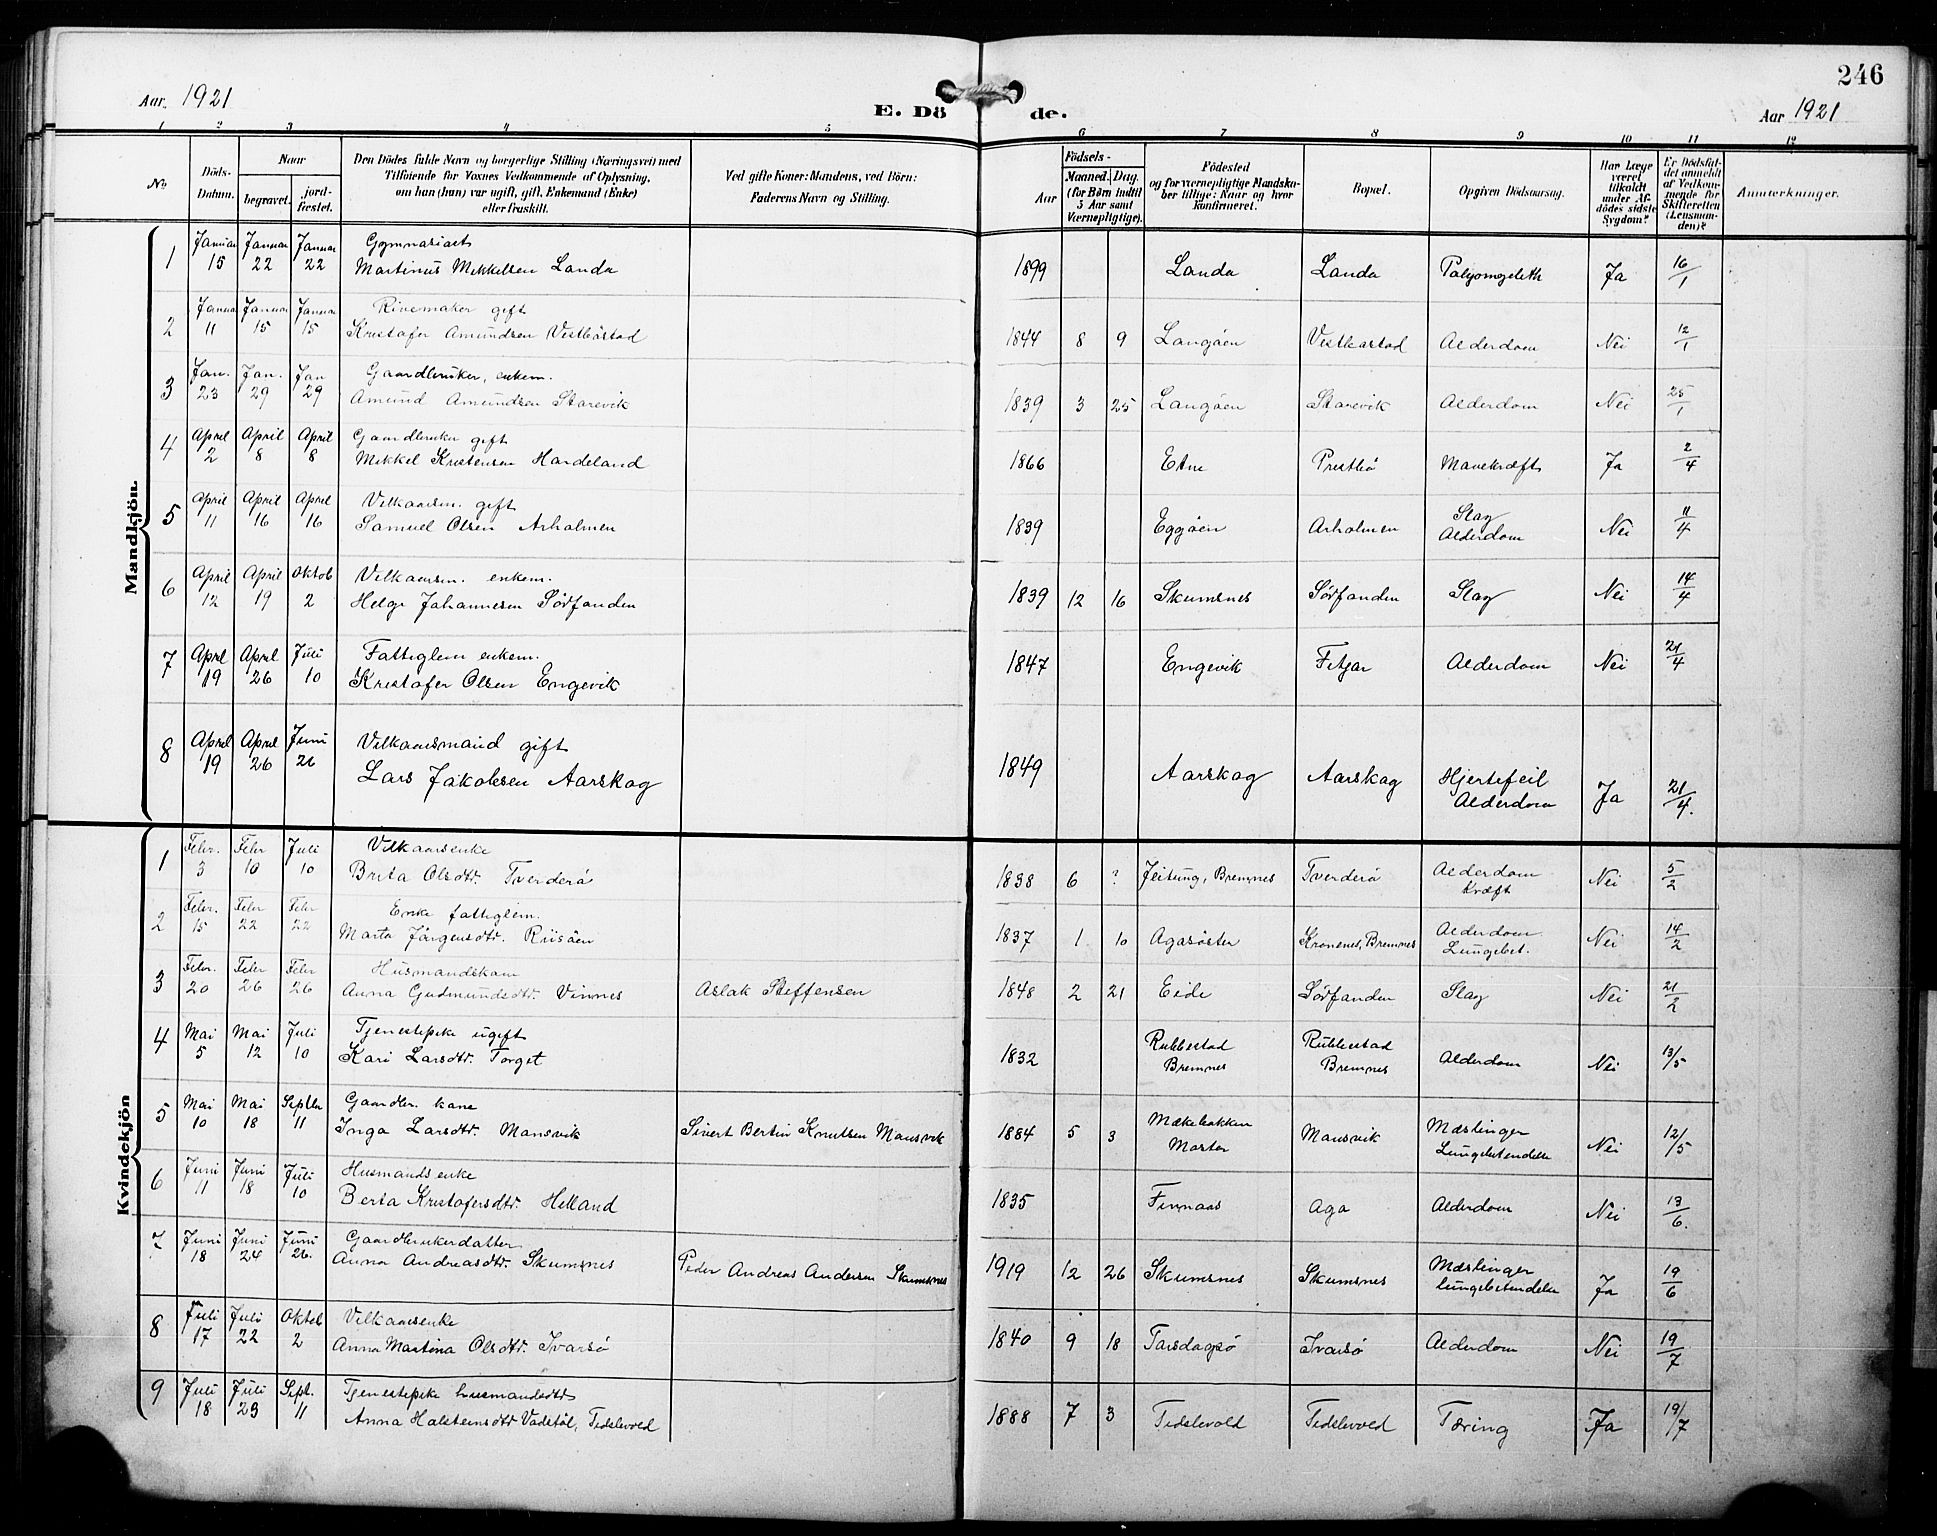 246
Aar 1921
E. Dö de.
Aar 1921
1 2 3 4 5 6 7 8 9 10 11 12
No.
Döds-Datum.
Naar
begravet.
jord-fæstet.
Den Dödes fulde Navn og borgerlige Stilling (Næringsvei) med
Tilföiende for Voxnes Vedkommende af Oplysning,
om han (hun) var ugift, gift, Enkemand (Enke)
eller fraskilt.
Ved gifte Koner: Mandens, ved Börn:
Faderens Navn og Stilling.
Födsels-
Aar
Maaned. Dag.
(for Börn indtil
5 Aar samt
Værnepligtige).
Födested
og for værnepligtige Mandska-
ber tillige: Naar og hvor
konfirmeret.
Bopæl.
Opgiven Dödsaarsag.
Har Læge
været
tilkaldt
under Af-
dödes sidste
Sygdom?
Er Dödsfal-
det anmeldt
af Vedkom-
mende for
Skifteretten
(Lensman-
den)?
Anmærkninger.
Mandkjön.
1 Januar 15 Januar 22 Januar 22 Gymnasiast
Martinus Mikkelsen Landa 1899 Landa Landa Ja 16/1
2 Januar 11 Januar 15 Januar 15 Rivemaker gift
Kristofer Amundsen Vestböstad 1844 8 9 Langöen Alderdom Nei 12/1
3 Jan. 23 Jan. 29 Jan 29 Gaardbruker, enkem.
Amund Amundsen Starevik 1839 3 25 Langöen Starevik Alderdom Nei 25/1
4 April 2 April 8 April 8 Gaardbruker gift
Mikkel Kristensen Hardeland 1866 Etne Prestbö Mavekræft Ja 2/4
5 April 11 April 16 April 16 Velkaarsm. gift
Samuel Olsen Arholmen 1839 Eggöen Arholmen Slag
Alderdom Nei 11/4
6 April 12 April 19 Oktob 2 Velkaarsm. enkem.
Helge Johannesen Sörfonden 1839 12 16 Skumsnes Sörfonden Slag Nei 14/4
7 April 19 April 26 Juli 10 Fattiglem enkem.
Kristofer Olsen Engevik 1847 Engevik Fitjar Alderdom Nei 21/4
8 April 19 April 26 Juni 26 Velkaarsmand gift
Lars Jakobsen Aarskog 1849 Aarskog Aarskog Hjertefeil
Alderdom Ja 21/4.
Kvindekjön
1 Febr. 3 Febr 10 Juli 10 Velkaarsenke
Brita Olsdtr. Tverderö 1838 6 ? Jeitung, Bremnes Tverderö Alderdom
Kræft Nei 5/2
2 Febr. 15 Febr 22 Febr 22 Enke fattiglem.
Marta Jörgensdtr. Riisöen 1837 1 10 Agasöster Kronenes, Bremnes Alderdom.
Lungebet. Nei 14/2
3 Febr. 20 Febr 26 Febr 26 Husmandskone
Anna Gudmundsdtr. Vinnes Aslak Steffensen 1848 2 21 Eide Sörfonden Slag Nei 21/2
4 Mai 5 Mai 12 Juli 10 Tjenestepike ugift
Kari Larsdtr. Torget 1832 Rubbestad
Bremnes Rubbestad
Bremnes Alderdom Nei 13/5
5 Mai 10 Mai 18 Septbr 11 Gaardbr. kone
Inga Larsdtr. Mansvik Sivert Bertin Knutsen Mansvik 1884 5 3 Mækebakken
Moster Mansvik Mæslinger
Lungebetendelse Nei 12/5
6 Juni 11 Juni 18 Juli 10 Husmandsenke
Berta Kristofersdtr. Helland 1835 Finnaas Aga Alderdom Nei 13/6.
7 Juni 18 Juni 24 Juni 26. Gaardbrukerdatter
Anna Andreasdtr. Skumsnes Peder Andreas Andersen Skumsnes 1919 12 26 Skumsnes Skumsnes Mæslinger
lungebetendelse Ja 19/6
8 Juli 17 Juli 22 Oktob 2 Velkaarsenke
Anna Martina Olsdtr. Ivarsö 1840 9 18 Ivarsö Alderdom Nei 19/7
9 Juli 18 Juli 23 Sept. 11 Tjenestepike husmandsdtr
Anna Halsteinsdtr Vadstöl, Tislevold 1888 7 3 Tislevold Tislevold Tæring Ja 19/7